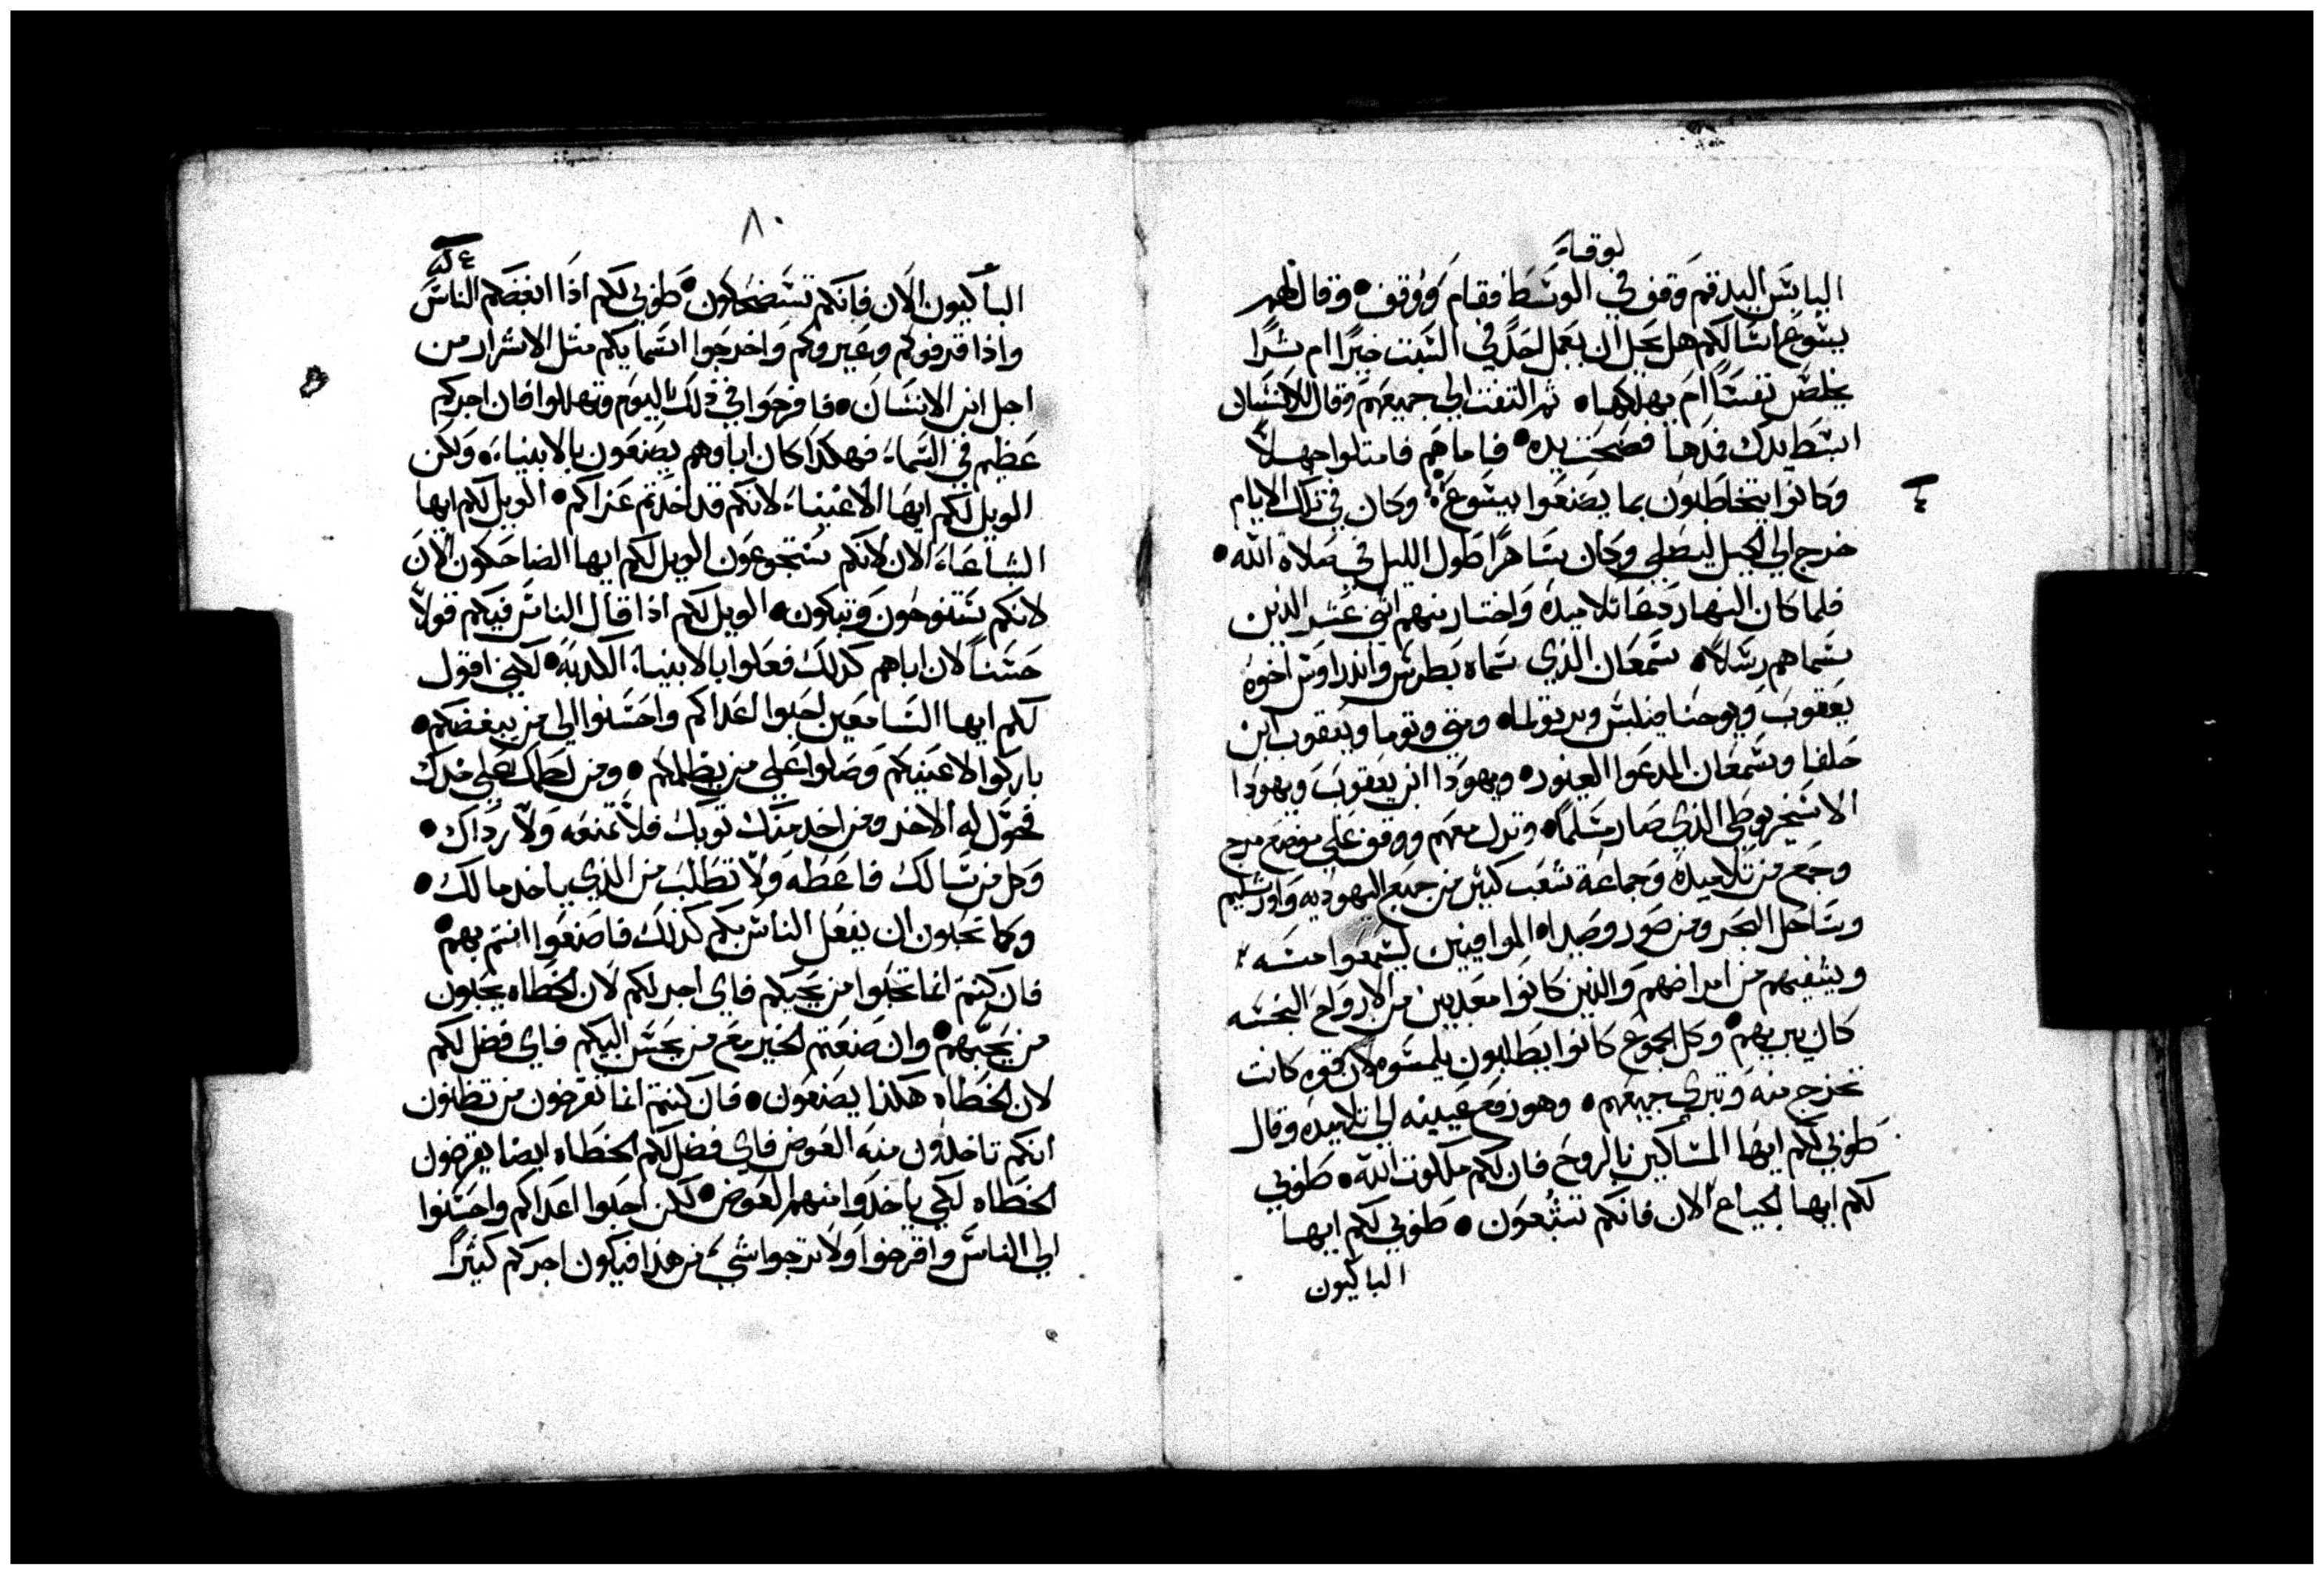 لوقا
اليابسَ اليد قم وَقف في الوسَط فقام وَوقف • وقال لهم
يسوع اسَالكم هل يحل ان يعمل احد في السَبت خيرًا ام شرًا
يخلص نفسَا ام يهلكها • ثم التفت الي جميعهم وقال للانسَان
ابسَط يدك فمدها فصحت يده • فاما هم فامتلوا جهلاً
وكانوا يتخاطبون بما يصنعوا بيسوع وكان في تلك الايام
خرج الي الجبل ليصلي وكان سَاهرًا طول الليل في صلاة الله •
فلما كان النهار دعا تلاميده واختار منهم اثني عشر الذين
سَماهم رسَلاً • سَمعان الذي سَماه بطرس واندراوس اخوه
يعقوب ويوحنا فيلبس وبرتولما • ومتي وتوما ويعقوب ابن
حلفا وسَمعان المدعوا الغيور • ويهودا ابن يعقوب ويهودا
الاسَخريوطي الذي صار مسَلمًا • ونزل معهم ووقف علي موضع مرج
وجمع من تلاميده وجماعة شعب كثير من جميع اليهوديه واورشليم
وسَاحل البحر ومن صور وصيدا • الموافيين ليسَمعوا منه
ويشفيهم من امراضهم والذين كانوا معدبين من الارواح النجسَه
كان يبريهم • وكل الجموع كانوا يطلبون يلمسَوه لان قوه كانت
تخرج منه وتبري جميعهم • وهو رفع عينيه الي تلاميده وقال
طوبي لكم ايها المسَاكين بالروح فان لكم ملكوت الله • طوبي
لكم ايها الجياع الان فانكم تشبعون • طوبي لكم ايها
الباكيون
٨٠
الباكيون الان فانكم ستضحكون • طوبي لكم اذا ابغضكم الناس
واذا قرفوكم وعيروكم واخرجوا اسَمايكم مثل الاشرار من
اجل ابن الانسَان • فافرحوا في ذلك اليوم وتهللوا فان اجركم
عظيم في السَماء فهكدا كان اباوهم يصنعون بالانبياء • ولكن
الويل لكم ايها الاغنياء لانكم قد اخدتم عزاكم • الويل لكم ايها
الشباعاء الان لانكم سَتجوعون الويل لكم ايها الضاحكون الان
لانكم سَتنوحون وتبكون • الويل لكم اذا قال الناس فيكم قولاً
حسَناً لان اباهم كدلك فعلوا بالانبياء الكدبة • لكني اقول
لكم ايها السَامعين احبوا اعداكم واحسَنوا الي من يبغضكم •
باركوا لاعنيكم وصلوا علي من يظلمكم • ومن لطمك علي خدك
فحوّل له الاخر ومن اخد منك توبك فلا تمنعه ولا رداك •
وكل من سَالك فاعطه ولا تطلب من الذي ياخد مالك •
وكما تحبون ان يفعل الناس بكم كذلك فاصنعوا انتم بهم •
فان كنتم انما تحبوا من يحبكم فاي اجر لكم لان الخطاه يحبون
من يحبهم • وان صنعتم الخير مع من يحسَن اليكم فاي فضل لكم
لان الخطاه هكذا يصنعون • فان كنتم انما تقرضون من تظنون
انكم تاخدون منه العوض فاي فضل لكم الخطاه ايضا يقرضون
الخطاه لكي ياخدوا منهم العوض • لكن احبوا اعداكم واحسَنوا
الي الناس واقرضوا ولا ترجوا شي من هذا فيكون اجركم كثيراً